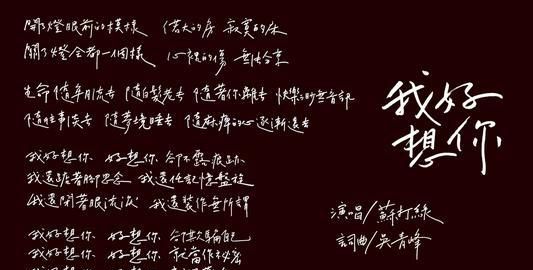 開了燈 眼前的模樣 偌大的房 寂寞的床
關了燈 全都一個樣 心裡的傷 無法分享
生命 隨年月流去 隨白髮老去 隨著你離去 快樂渺無音訊
隨往事淡去 隨夢境睡去 隨麻痺的心逐漸遠去
我好想你 好想你 卻不露痕跡
我還踮著腳思念 我還任記憶盤旋
我還閉著眼流淚 我還裝作無所謂
我好想你 好想你 卻欺騙自己
我好想你 好想你 就當作秘密
我好
想你
演唱/蘇打綠
詞曲/吳青峰